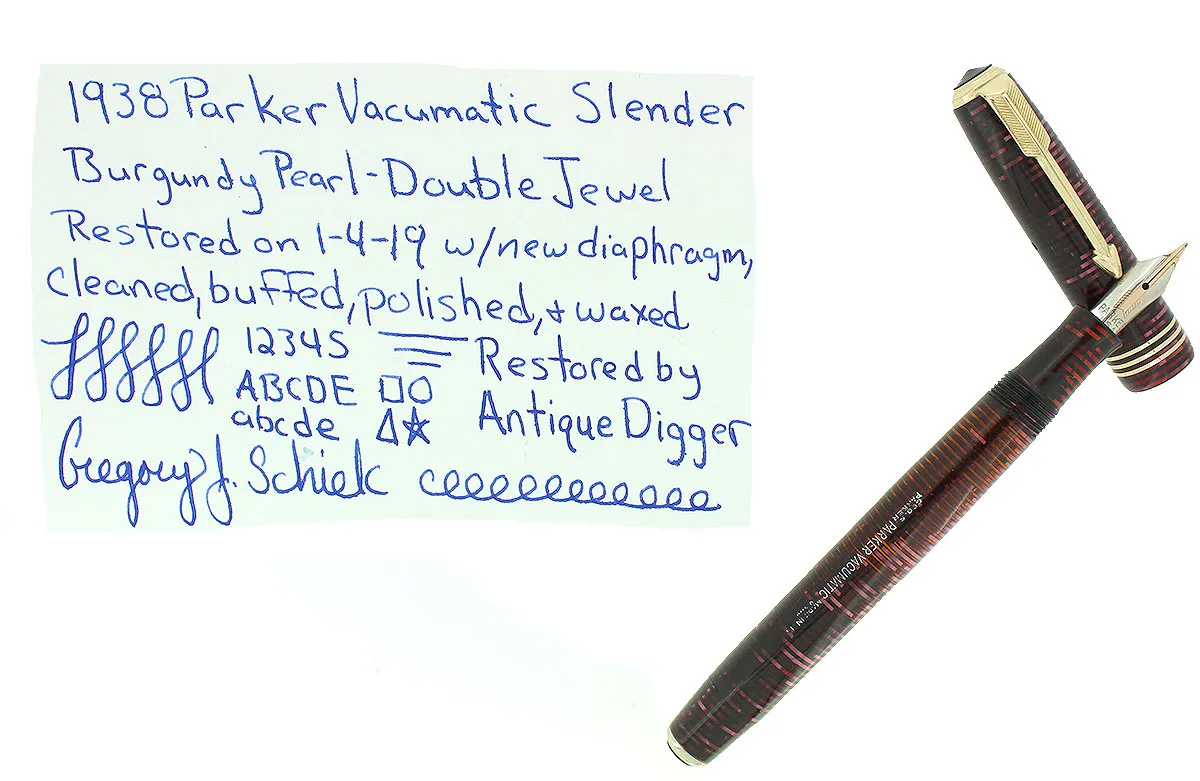 1938 Parker Vacumatic Slender
Burgundy Pearl-Double Jewel
Restored on 1-4-19 w/new diaphragm,
cleaned, buffed, polished, + waxed
12345
ABCDE
abcde
Restored by
Antique Digger
Gregory J. Schiek
PARKER VACUMATIC